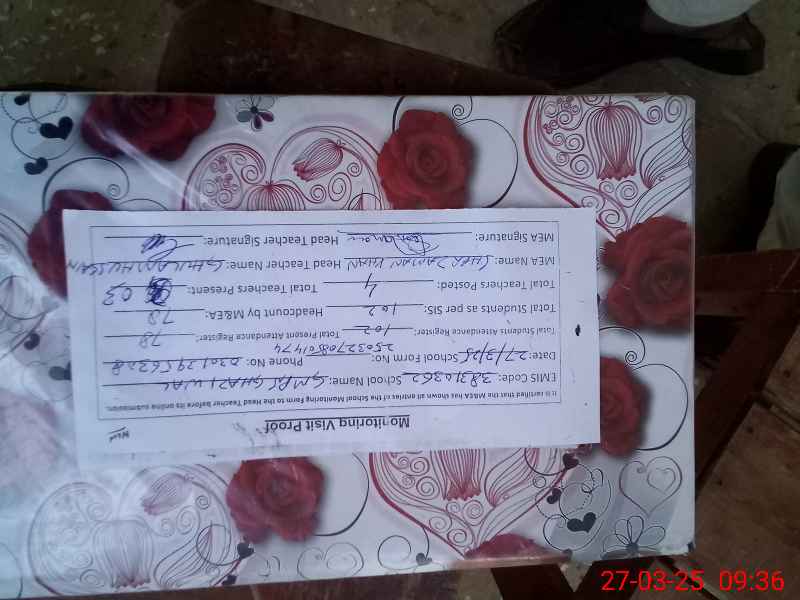 Monitoring Visit Proof
It is certified that the M&EA has shown all entries of the School Monitoring Form to the Head Teacher before its online submission.
EMIS Code: 38310362 School Name: GMPS GHAZI WAL
Date: 27/3/25 School Form No: 25032708501474 Phone No: 03012956328
Total Students Attendance Register: 102 Total Present Attendance Register: 78
Total Students as per SIS: 102 Headcount by M&EA: 78
Total Teachers Posted: 4 Total Teachers Present: 03
MEA Name: SHER ZAMAN KHAN Head Teacher Name: GHULAM HUSSAIN
MEA Signature: Head Teacher Signature:
27-03-25 09:36